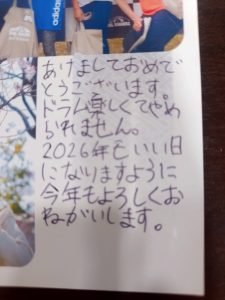 あけましておめで
とうございます。
ドラム楽しくてやめ
られません。
2026年もいい日
になりますように
今年もよろしくお
ねがいします。
adidas